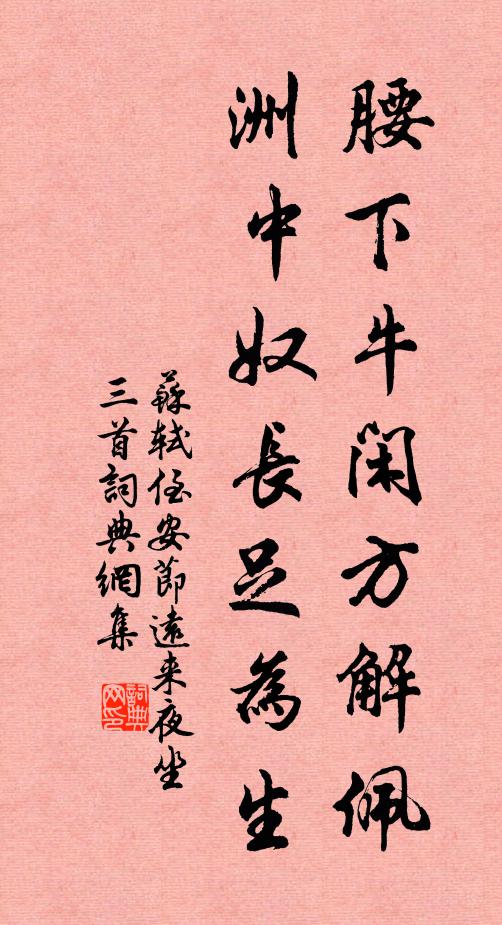 腰下牛閑方解佩
洲中奴長足為生
蘇軾侄安節遠来夜坐
三首詞典網集
詞典
网印